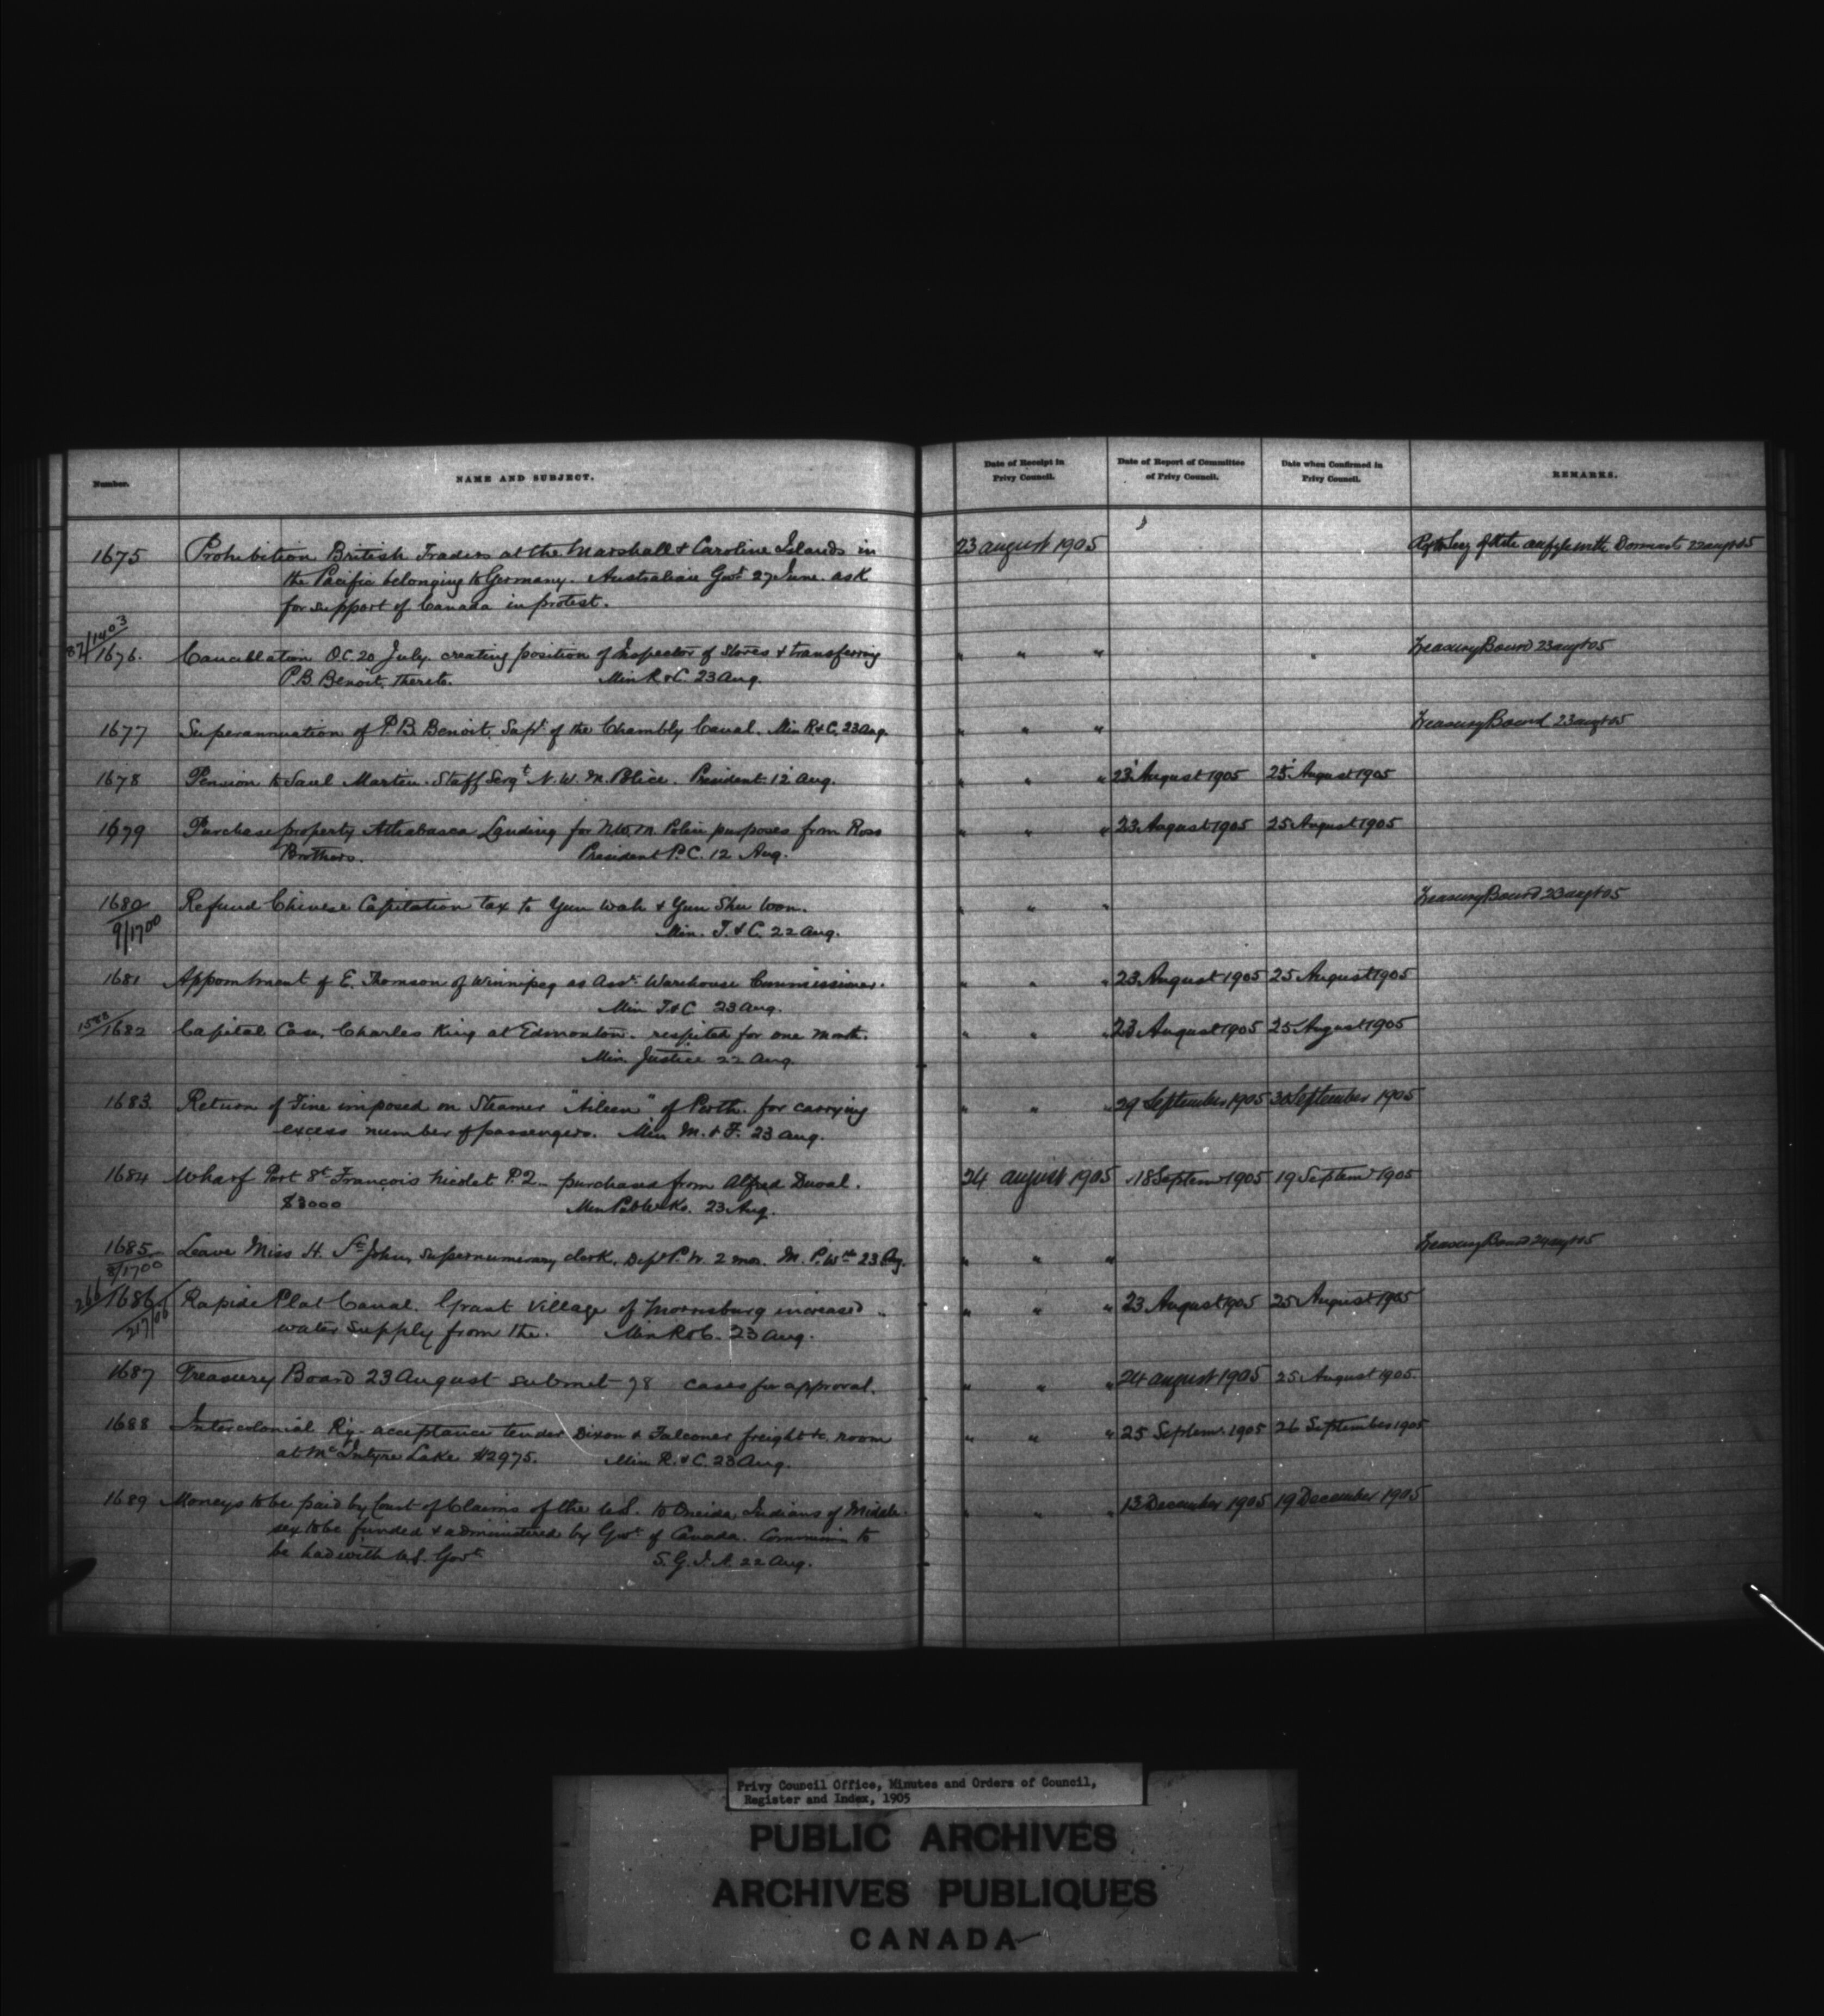 Number.
NAME AND SUBJECT.
Date of Receipt in Privy Council.
Date of Report of Committee of Privy Council.
Date when Confirmed in Privy Council.
REMARKS.
1675 Prohibition British Traders at the Marshall & Caroline Islands in 23 August 1905
the Pacific belonging to Germany. Australian Govt 27 June. ask
for support of Canada in protest.
82/1403
1676. Cancellation O.C. 20 July. creating position of Inspector of Stores & transferring " " " Treasury Board 23 augt 05
P.B. Benoit, thereto. Min R & C. 23 Aug.
1677 Superannuation of P.B. Benoit, Supt of the Chambly Canal. Min R & C. 23 Aug. " " " Treasury Board 23 augt 05
1678 Pension to Saul Martin. Staff Sergt N. W. M. Police. President 12 Aug. " " " 23 August 1905 25 August 1905
1679 Purchase property Athabasca Landing for N.W.M Police purposes from Ross " " " 23 August 1905 25 August 1905
Brothers. President P.C. 12 Aug.
1680 Refund Chinese Capitation tax to Yun Wah & Yun Shu Woon. " " " Treasury Board 23 augt 05
9/1700 Min. T. & C. 22 Aug.
1681 Appointment of E. Thomson of Winnipeg as Asst. Warehouse Commissioner. " " " 23 August 1905 25 August 1905
Min T & C 23 Aug.
1682 Capital Case, Charles King at Edmonton. respited for one month. " " " 23 August 1905 25 August 1905
Min. Justice 22 Aug.
1683 Return of Fine imposed on Steamer "Aileen" of Perth. for carrying " " " 29 September 1905 30 September 1905
excess number of passengers. Min M. & F. 23 Aug.
1684 Wharf Port St François Nicolet P.Q. purchased from Alfred Duval. 24 August 1905 18 Septemr 1905 19 Septemr 1905
$3000 Min Pub Wks. 23 Aug.
1685 Leave Miss H. St John, supernumerary clerk, Dept P. W. 2 mos. M. P. Wks 23 Aug. " " " Treasury Board 24 augt 05
8/1700
1686 Rapide Plat Canal. Grant Village of Morrisburg increased " " " 23 August 1905 25 August 1905
water supply from the. Min R & C. 23 Aug.
1687 Treasury Board 23 August submit 78 cases for approval. " " " 24 August 1905 25 August 1905
1688 Intercolonial Ry. acceptance tender Dixon & Falconer freight &c. room " " " 25 Septemr 1905 26 September 1905
at McIntyre Lake $2975. Min R. & C. 23 Aug.
1689 Moneys to be paid by Court of Claims of the U.S. to Oneida Indians of Middle- " " " 13 December 1905 19 December 1905
sex to be funded & administered by Govt of Canada. to
be had with U.S. Govt S. G. I. A. 22 Aug.
Privy Council Office, Minutes and Orders of Council,
Register and Index, 1905
PUBLIC ARCHIVES
ARCHIVES PUBLIQUES
CANADA